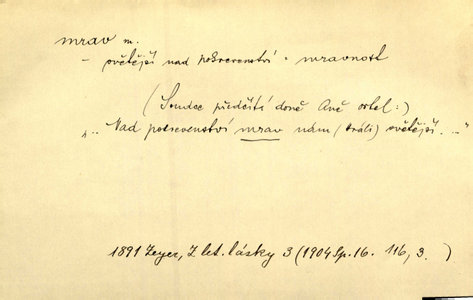 mrav m.
- světější nad pokrevenství = mravnost
(Soudce předčítá doně Aně ortel:)
„.. Nad pokrevenství mrav nám (králi) světější. .."
1891 Zeyer, Z let. lásky 3 (1904 Sp. 16. 116, 3. )